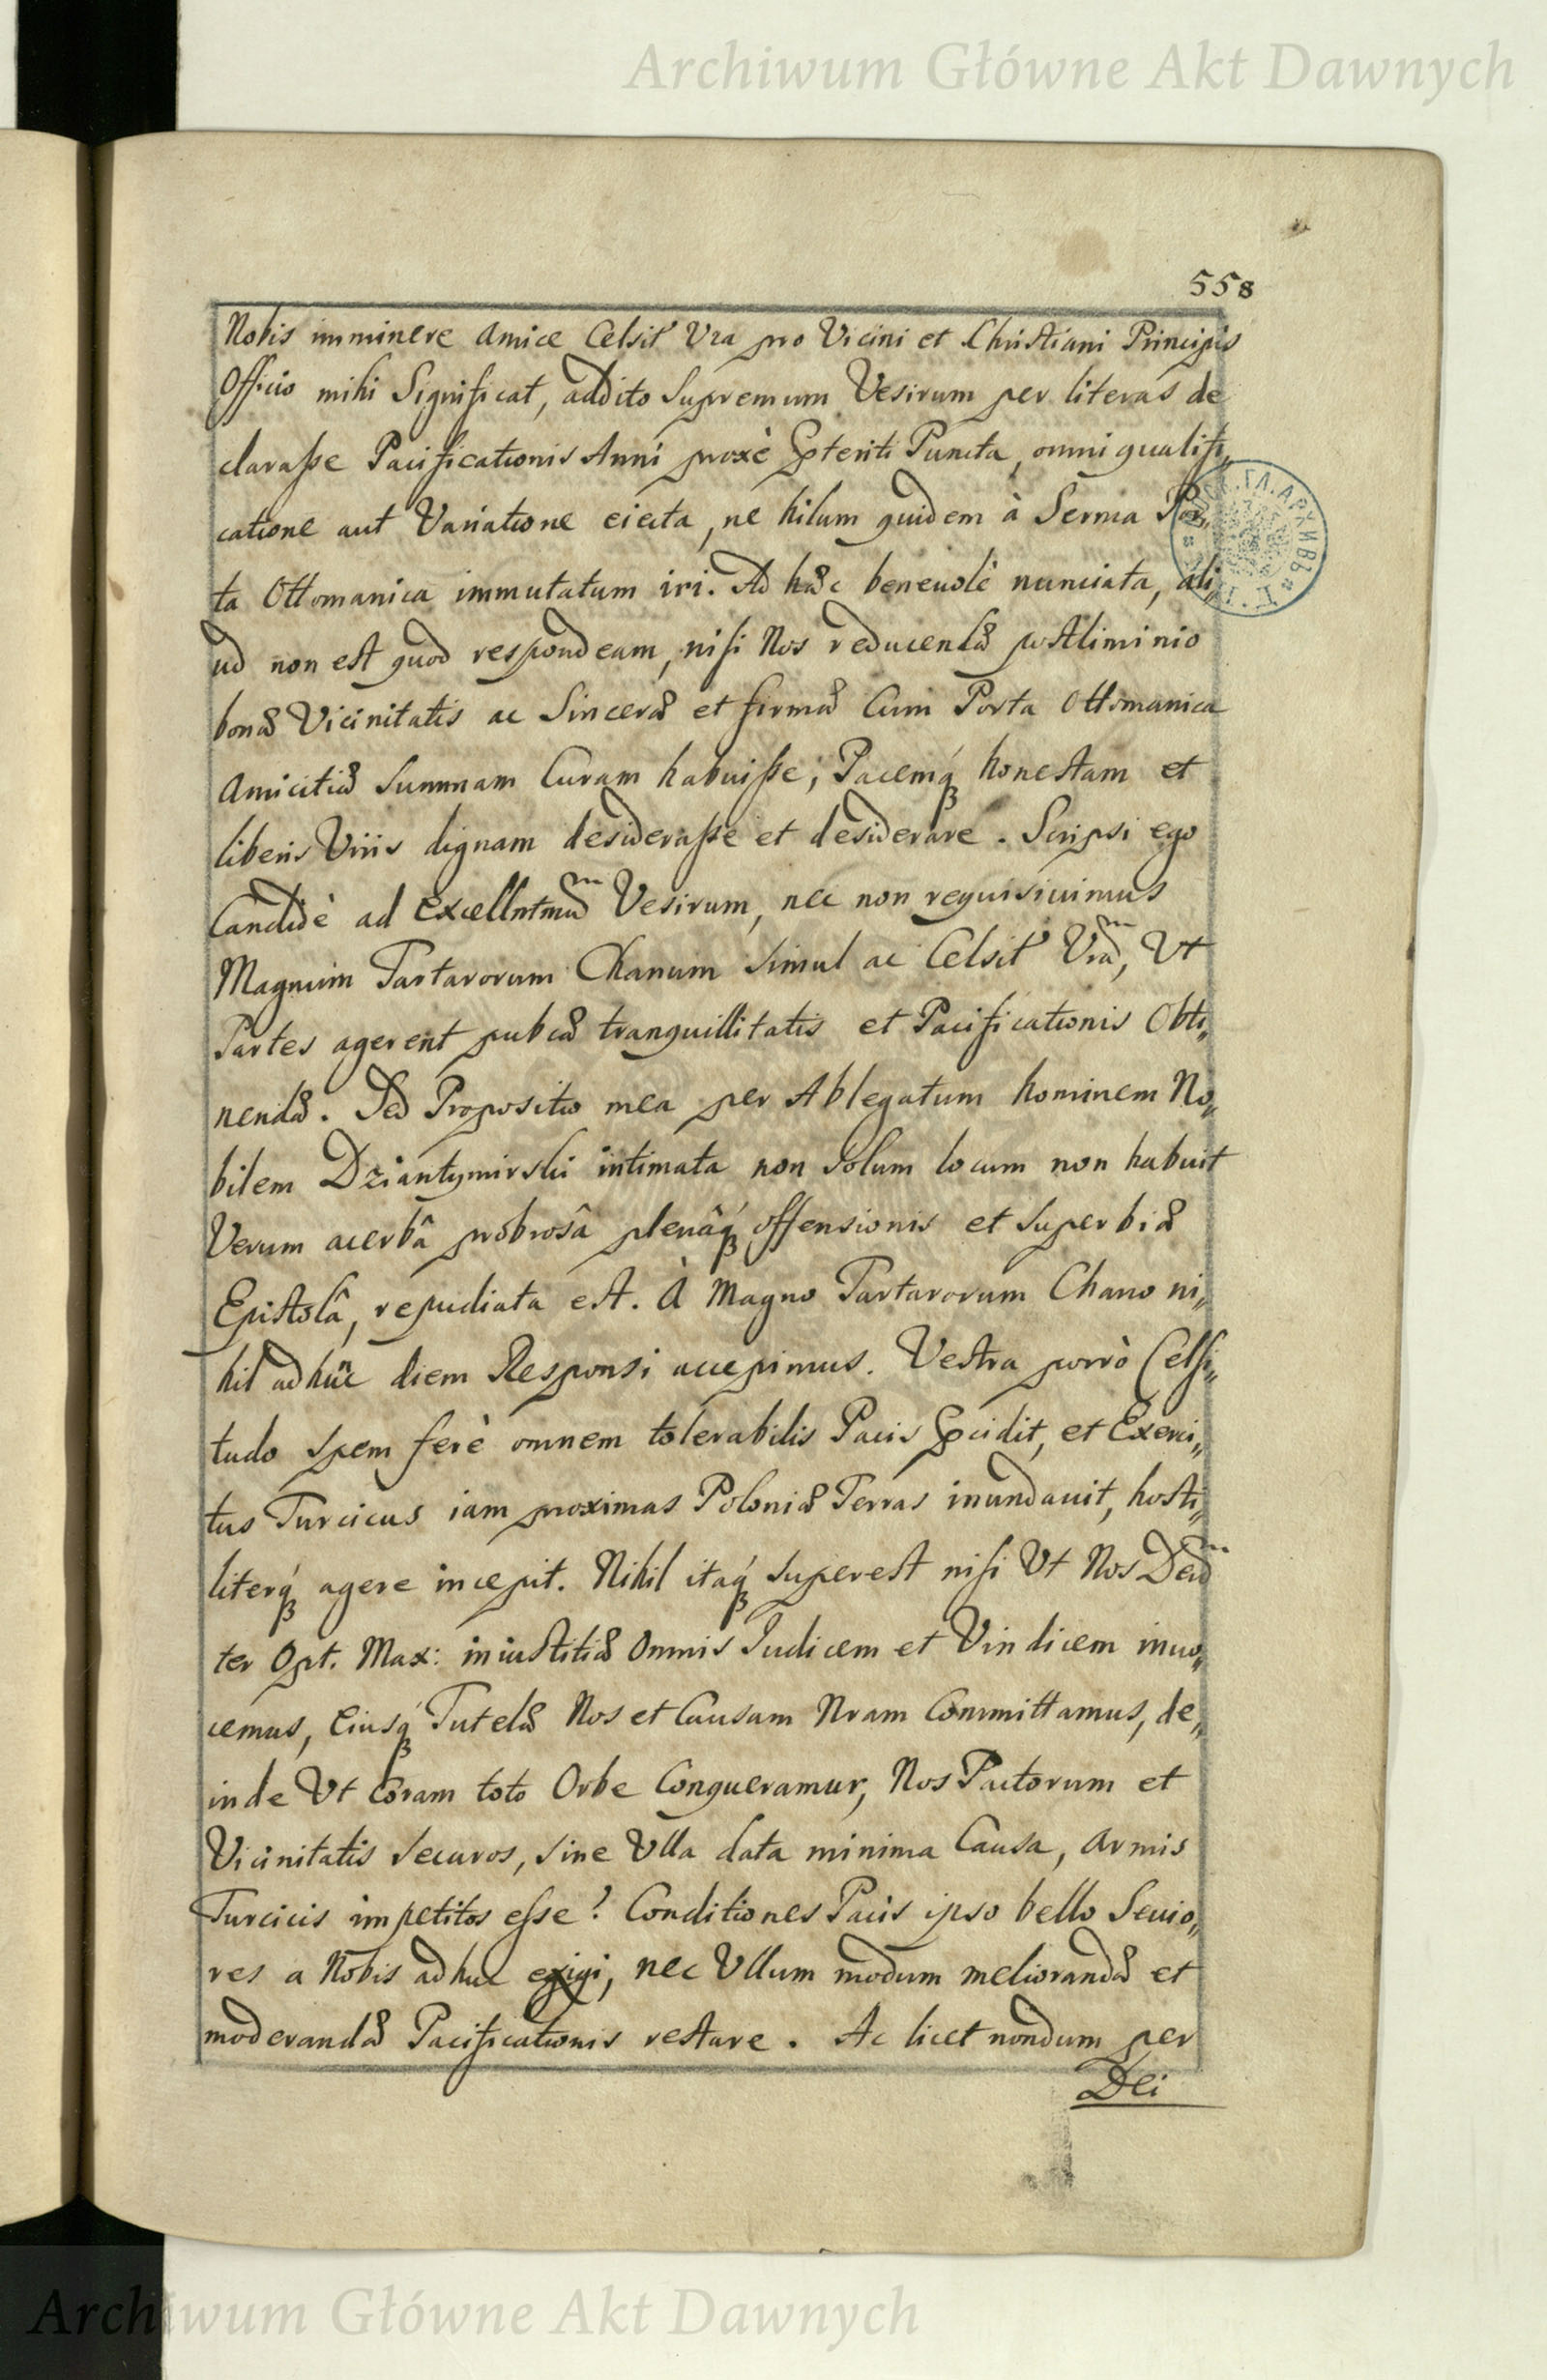 Archiwum Główne Akt Dawnych
558
Nobis imminere amice Celsit' Vra pro Vicini et Christiani Principis
Officio mihi Significat, addito Supremum Vesirum per literas de
clarasse Pacificationis Anni proxè ptenti Puncta, omni qualifi„
catione aut Variatione eiecta, ne hilum quidem à Serma Por„
ta Ottomanica immutatum iri. Ad hæc beneuolè nunciata, ali„
ud non est quod respondeam, nisi Nos reducendæ postliminio
bonæ Vicinitatis ac Sinceræ et firmæ Cum Porta Ottomanica
Amicitiæ Summam Curam habuisse, Pacemq́ honestam et
liberis Viris dignam desiderasse et desiderare. Scripsi ego
Candidè ad Excellntmũ Vesirum, nec non requisiuimus
Magnum Tartarorum Chanum simul ac Celsit' Vrãm, Vt
Partes agerent pubcæ tranquillitatis et Pacificationis Obti„
nendæ. Sed Propositio mea per Ablegatum hominem No„
bilem Dziantymirski intimata non solum locum non habuit
Verum acerbâ probrosâ plenâq́ offensionis et superbiæ
Epistolâ, repudiata est. À Magno Tartarorum Chano ni„
hil ad hũc diem Responsi accepimus. Vestra porrò Celsi„
tudo spem ferè omnem tolerabilis Pacis pcidit, et Exerci„
tus Turcicus iam proximas Poloniæ Terras inundauit, hosti„
literq́ agere incepit. Nihil itaq́ superest nisi Vt Nos Deũ
ter Opt. Max: iniustitiæ Omnis Iudicem et Vindicem inuo„
cemus, Eiusq́ Tutelæ Nos et Causam Nram Committamus, de„
inde Vt Coram toto Orbe Conqueramur, Nos Pactorum et
Vicinitatis securos, sine Vlla data minima Causa, Armis
Turcicis impetitos esse? Conditiones Pacis ipso bello Seuio„
res a Nobis adhuc exigi, nec Vllum modum meliorandæ et
moderandæ Pacificationis restare. Ac licet nondum per
Dei
Archiwum Główne Akt Dawnych